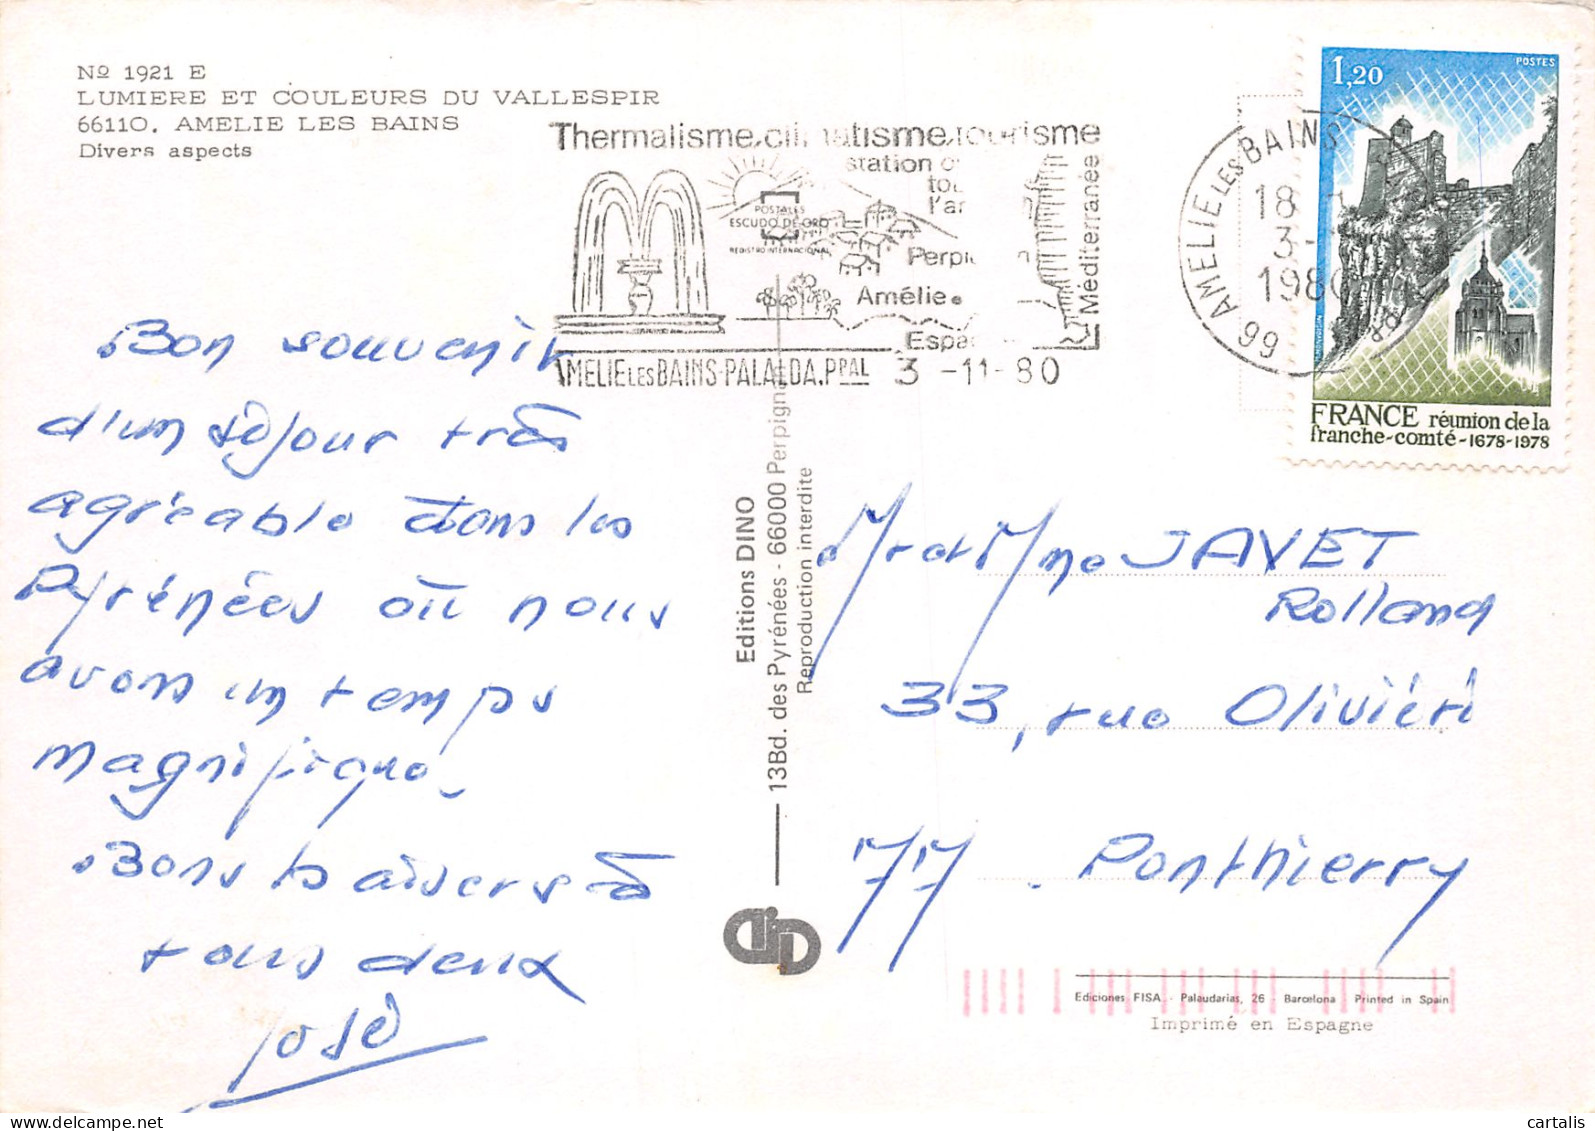 Nº 1921 E
LUMIERE ET COULEURS DU VALLESPIR
66110. AMELIE LES BAINS
Divers aspects
Bon souvenir
d'un séjour très
agréable dans les
Pyrénées où nous
avons un temps
magnifique.
Bons baisers à
tous deux
José
Thermalisme, climatisme, tourisme
station
Perpi
Amélie
Espa
Méditerranée
POSTALES
ESCUDO DE ORO
REGISTRO INTERNACIONAL
AMELIE LES BAINS-PALALDA. PPAL 3 -11- 80
66 AMELIE LES BAINS
18
3 -
1980
1,20
POSTES
FRANCE réunion de la
franche-comté-1678-1978
Editions DINO
13Bd. des Pyrénées - 66000 Perpignan
Reproduction interdite
Mr et Mme JAVET
Rolland
33, rue Oliviéri
77. Ponthierry
Ediciones FISA - Palaudarias, 26 - Barcelona Printed in Spain
Imprimé en Espagne
cartalis
delcampe.net